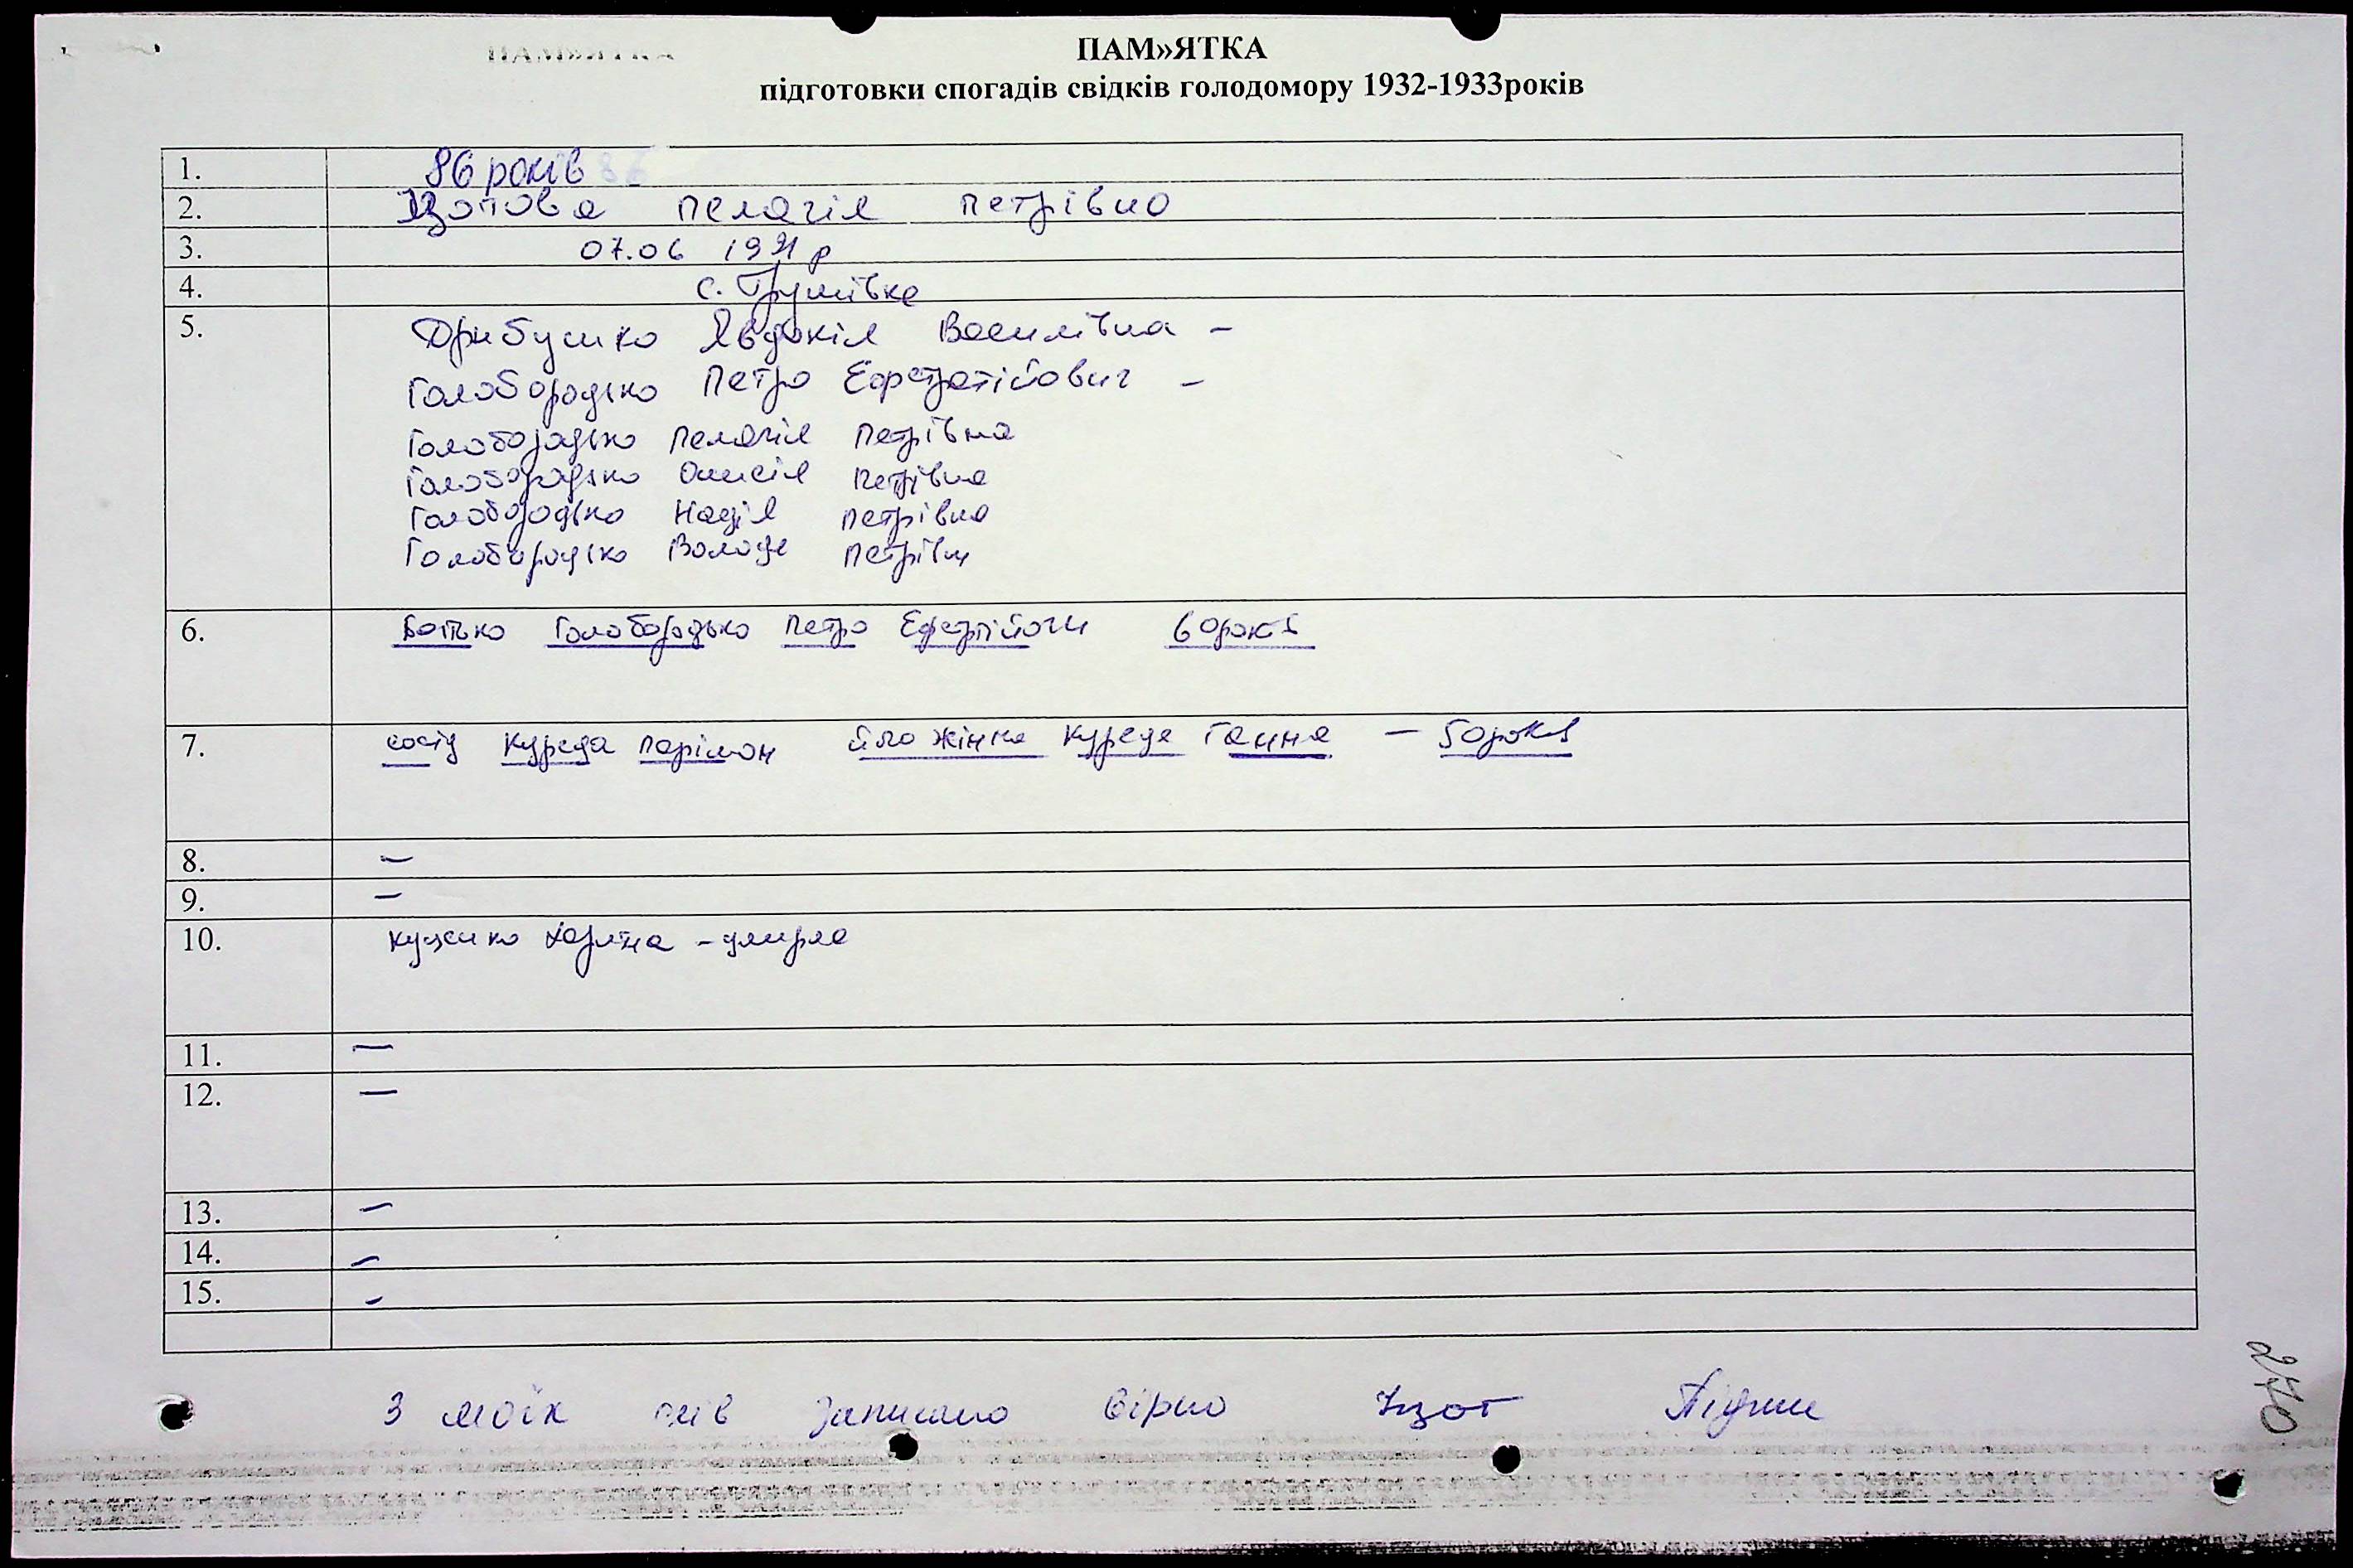 ПАМ»ЯТКА
підготовки спогадів свідків голодомору 1932-1933років
1. 86 років
2. Ізотова Пелагія Петрівна
3. 07.06 1921 р
4. с. Грушівка
5. Дрибушко Явдокія Василівна –
Голобородько Петро Евстратійович –
Голобородько Пелагія Петрівна
Голобородько Олисія Петрівна
Голобородько Надія Петрівна
Голобородько Володя Петрівич
6. Батько Голобородько Петро 60 років
7. сосід Куреда Парімон його жінка Куреда Ганна – 50 років
8. –
9. –
10. Харитина – умирла
11. –
12. –
13. –
14. –
15. –
З моїх слів записано вірно Ізот Підпис
270